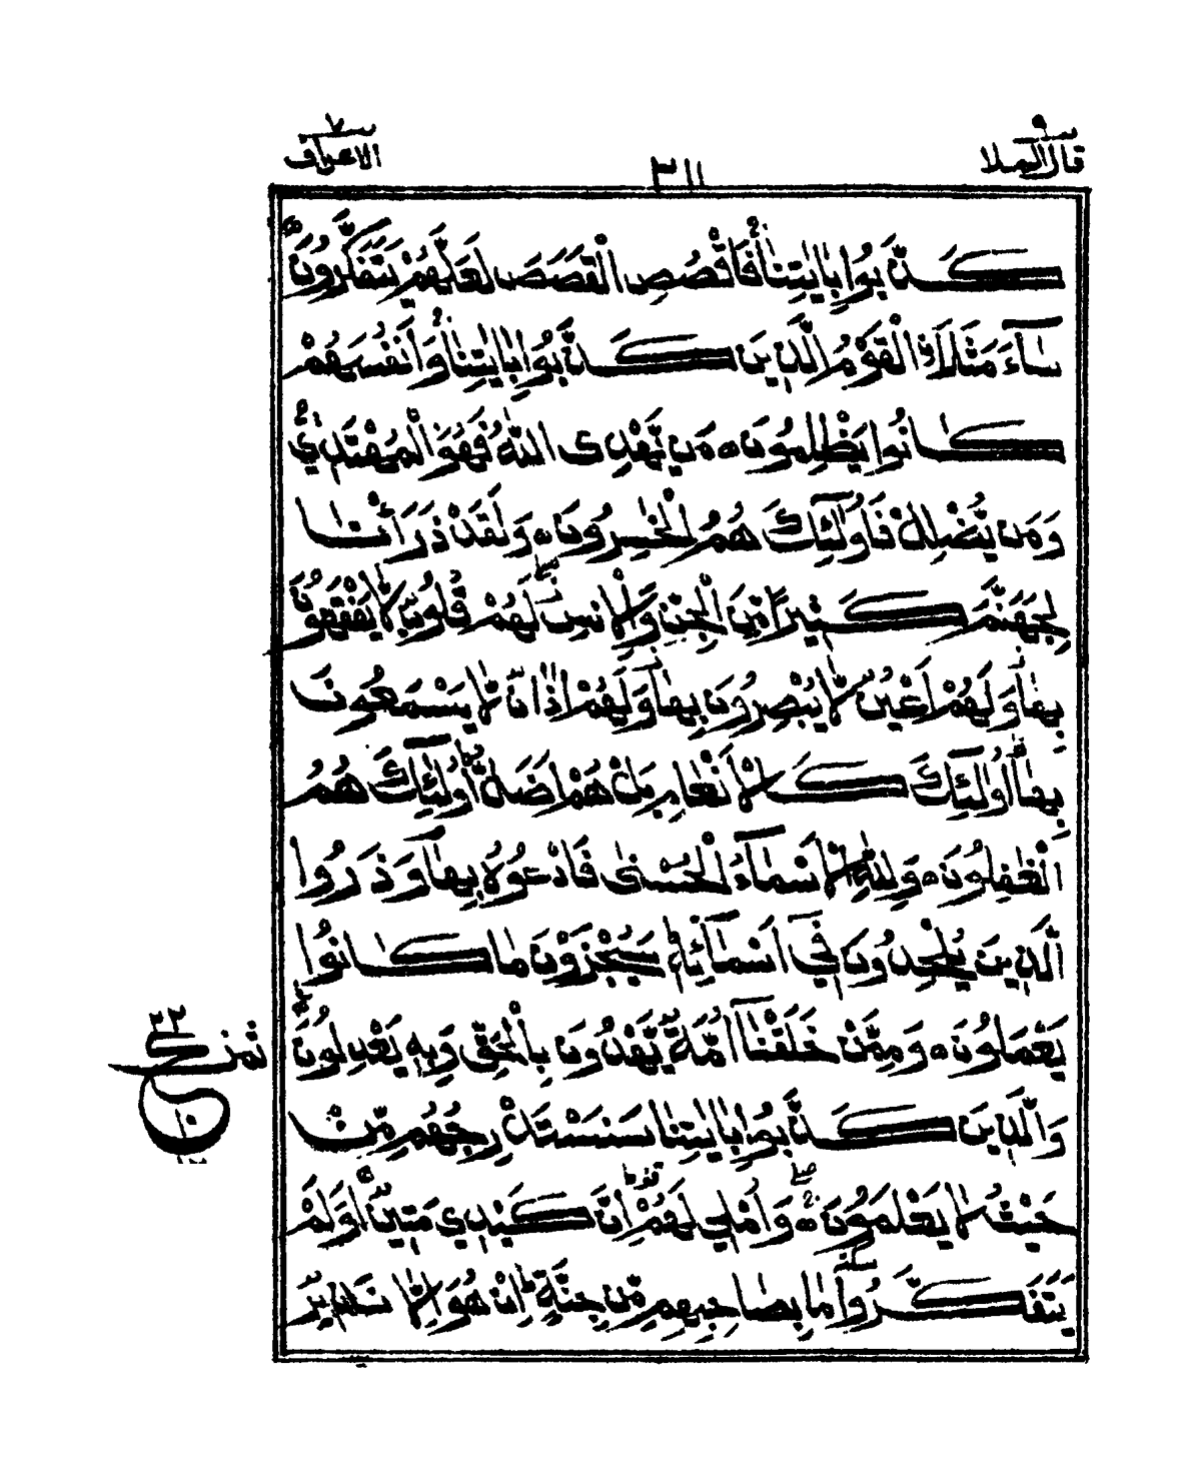 قال الملا ٩
٣١١
الاعراف ٧
كَذَّبُوا بِاٰيٰتِنَا ۚ فَاقْصُصِ الْقَصَصَ لَعَلَّهُمْ يَتَفَكَّرُونَ
سَآءَ مَثَلًا ۨ الْقَوْمُ الَّذِينَ كَذَّبُوا بِاٰيٰتِنَا وَاَنْفُسَهُمْ
كَانُوا يَظْلِمُونَ ۝ مَن يَّهْدِى اللّٰهُ فَهُوَ الْمُهْتَدِي ۚ
وَمَن يُّضْلِلْ فَاُولٰٓئِكَ هُمُ الْخٰسِرُونَ ۝ وَلَقَدْ ذَرَأْنَا
لِجَهَنَّمَ كَثِيرًا مِّنَ الْجِنِّ وَالْاِنْسِ ۖ لَهُمْ قُلُوبٌ لَّا يَفْقَهُونَ
بِهَا وَلَهُمْ اَعْيُنٌ لَّا يُبْصِرُونَ بِهَا وَلَهُمْ اٰذَانٌ لَّا يَسْمَعُونَ
بِهَا ۚ اُولٰٓئِكَ كَالْاَنْعَامِ بَلْ هُمْ اَضَلُّ ۚ اُولٰٓئِكَ هُمُ
الْغٰفِلُونَ ۝ وَلِلّٰهِ الْاَسْمَآءُ الْحُسْنٰى فَادْعُوهُ بِهَا وَذَرُوا
الَّذِينَ يُلْحِدُونَ فِيٓ اَسْمَآئِهٖ ۚ سَيُجْزَوْنَ مَا كَانُوا
يَعْمَلُونَ ۝ وَمِمَّنْ خَلَقْنَآ اُمَّةٌ يَّهْدُونَ بِالْحَقِّ وَبِهٖ يَعْدِلُونَ
ثمن
وَالَّذِينَ كَذَّبُوا بِاٰيٰتِنَا سَنَسْتَدْرِجُهُم مِّنْ
حَيْثُ لَا يَعْلَمُونَ ۝ وَاُمْلِي لَهُمْ ۚ اِنَّ كَيْدِي مَتِينٌ ۝ اَوَلَمْ
يَتَفَكَّرُوا ۘ مَا بِصَاحِبِهِم مِّن جِنَّةٍ ۚ اِنْ هُوَ اِلَّا نَذِيرٌ